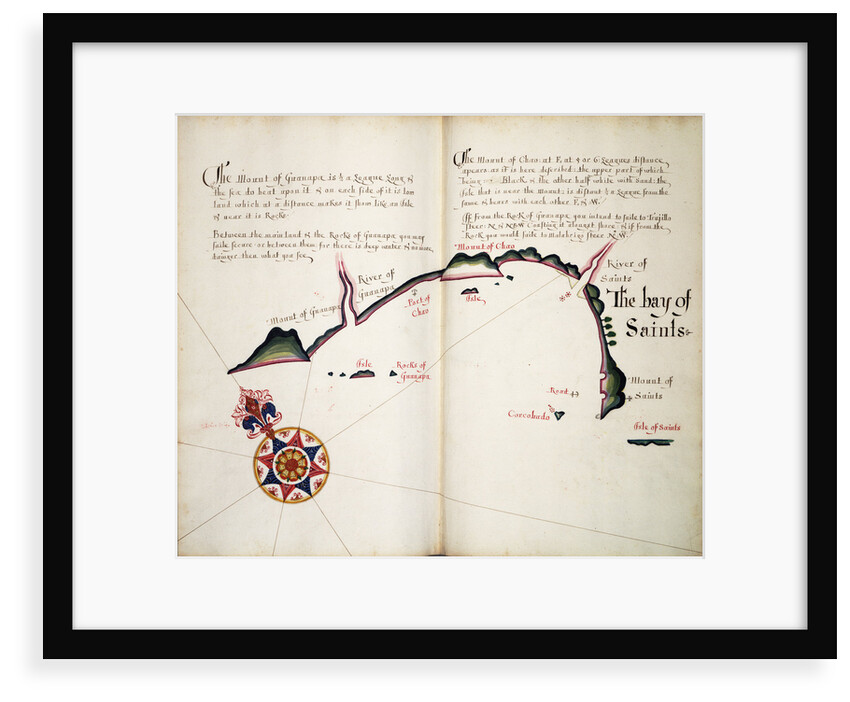 The Mount of Guanapa is ½ a League Long &
the sea do beat upon it & on each side of it is low
land which at a distance makes it show like an Isle
& near it is Rocks.
Between the main land & the Rocks of Guanapa you may
saile secure or between them for there is deep water & no more
danger then what you see
The Mount of Chao: at E. at 4 or 6 Leagues distance
apears as it is here described: the upper part of which
being Black & the other half white with Sand: the
Isle that is near the Mount: is distant ½ a League from the
same & bears with each other E. & W.
If from the Rock of Guanapa you intend to saile to Truxillo
steer: N & NBW Coasting it alongst shore: & if from the
Rock you would saile to Malabrigo steer N W.
Mount of Chao
River of
Guanapa
River of
Saints
Mount of Guanapa
Port of
Chao
Isle
The bay of
Saints
Isle
Rocks of
Guanapa
Road
Mount of
Saints
Corcobado
Isle of Saints